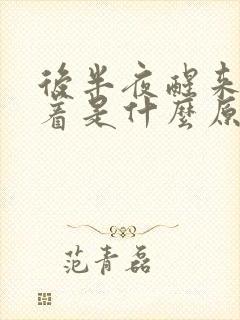 後半夜醒来
着是什麼原
范青磊